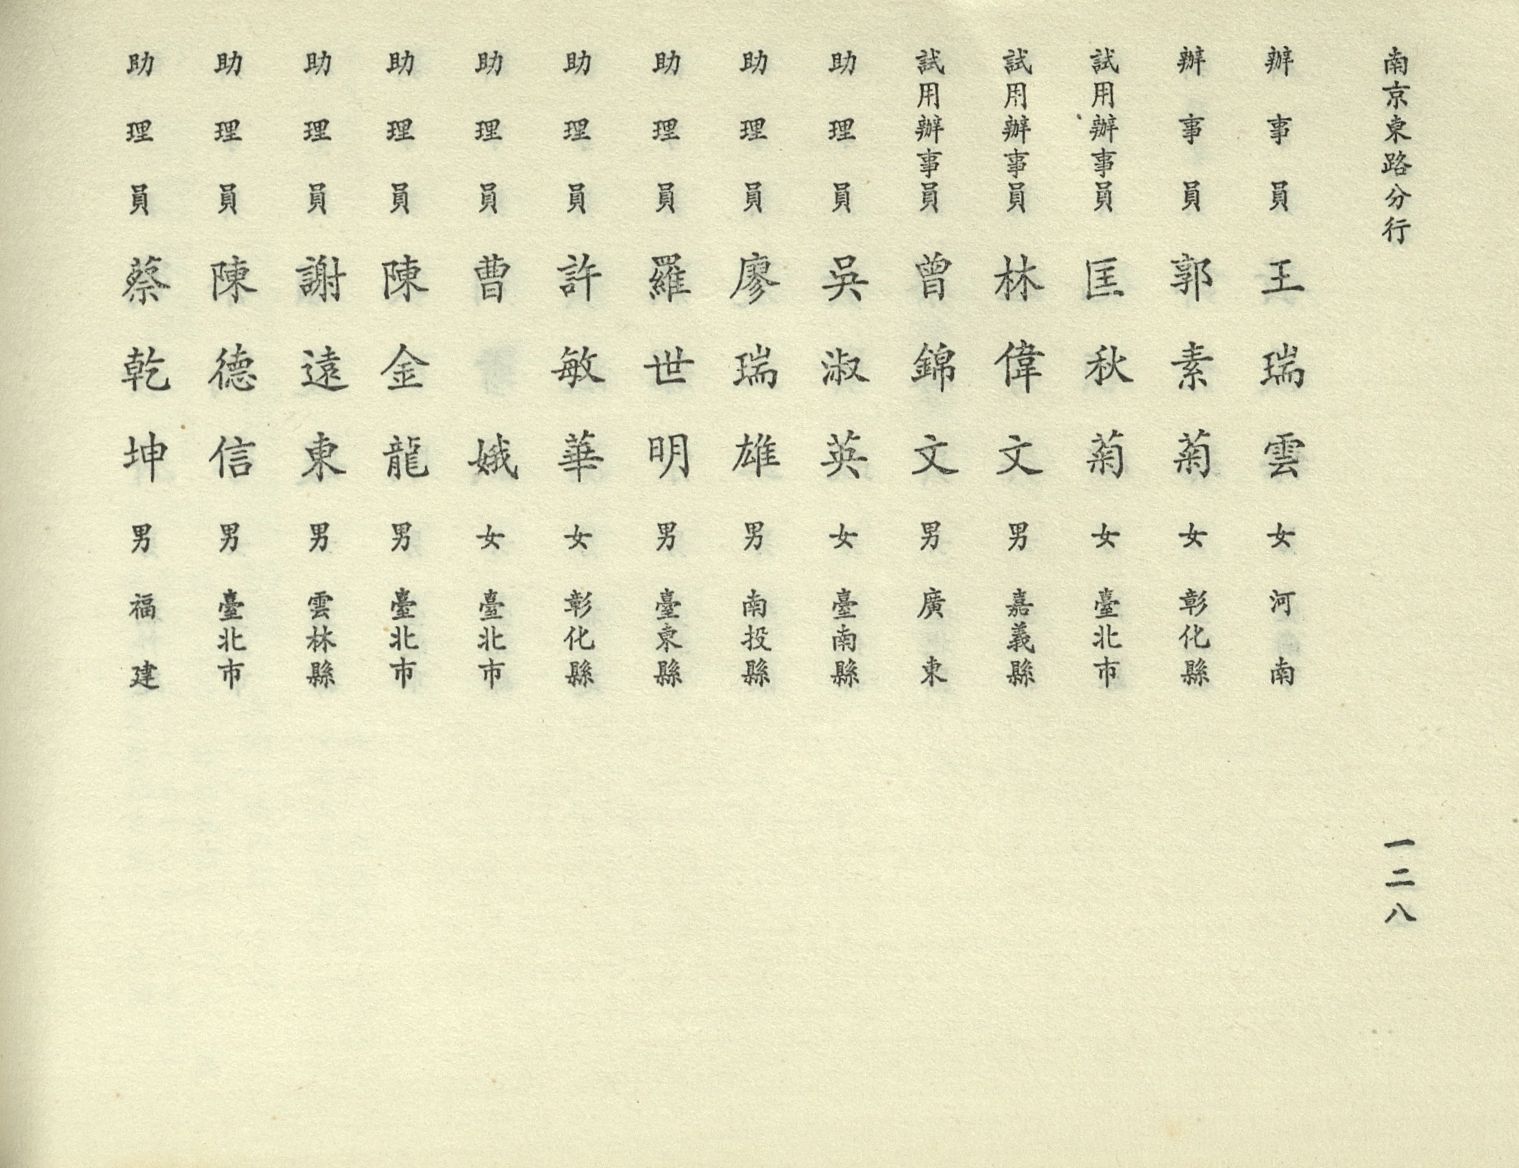 南京東路分行
一二八
辦事員王瑞雲女河南
辦事員郭素菊女彰化縣
試用辦事員匡秋菊女臺北市
試用辦事員林偉文男嘉義縣
試用辦事員曾錦文男廣東
助理員吳淑英女臺南縣
助理員廖瑞雄男南投縣
助理員羅世明男臺東縣
助理員許敏華女彰化縣
助理員曹娥女臺北市
助理員陳金龍男臺北市
助理員謝遠東男雲林縣
助理員陳德信男臺北市
助理員蔡乾坤男福建